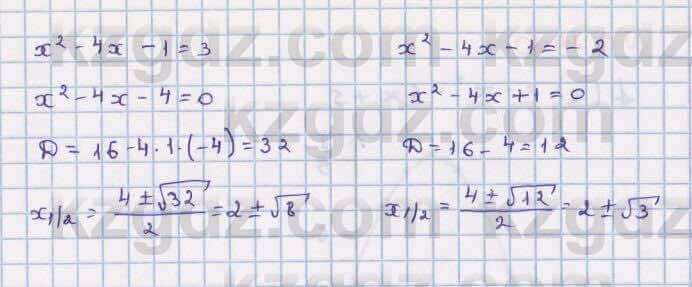 x² - 4x - 1 = 3
x² - 4x - 4 = 0
D = 16 - 4·1·(-4) = 32
x₁/₂ = (4 ± √32)/2 = 2 ± √8
x² - 4x - 1 = - 2
x² - 4x + 1 = 0
D = 16 - 4 = 12
x₁/₂ = (4 ± √12)/2 = 2 ± √3
kzgdz.com
kzgdz.com
kzgdz.com
kzgdz.com